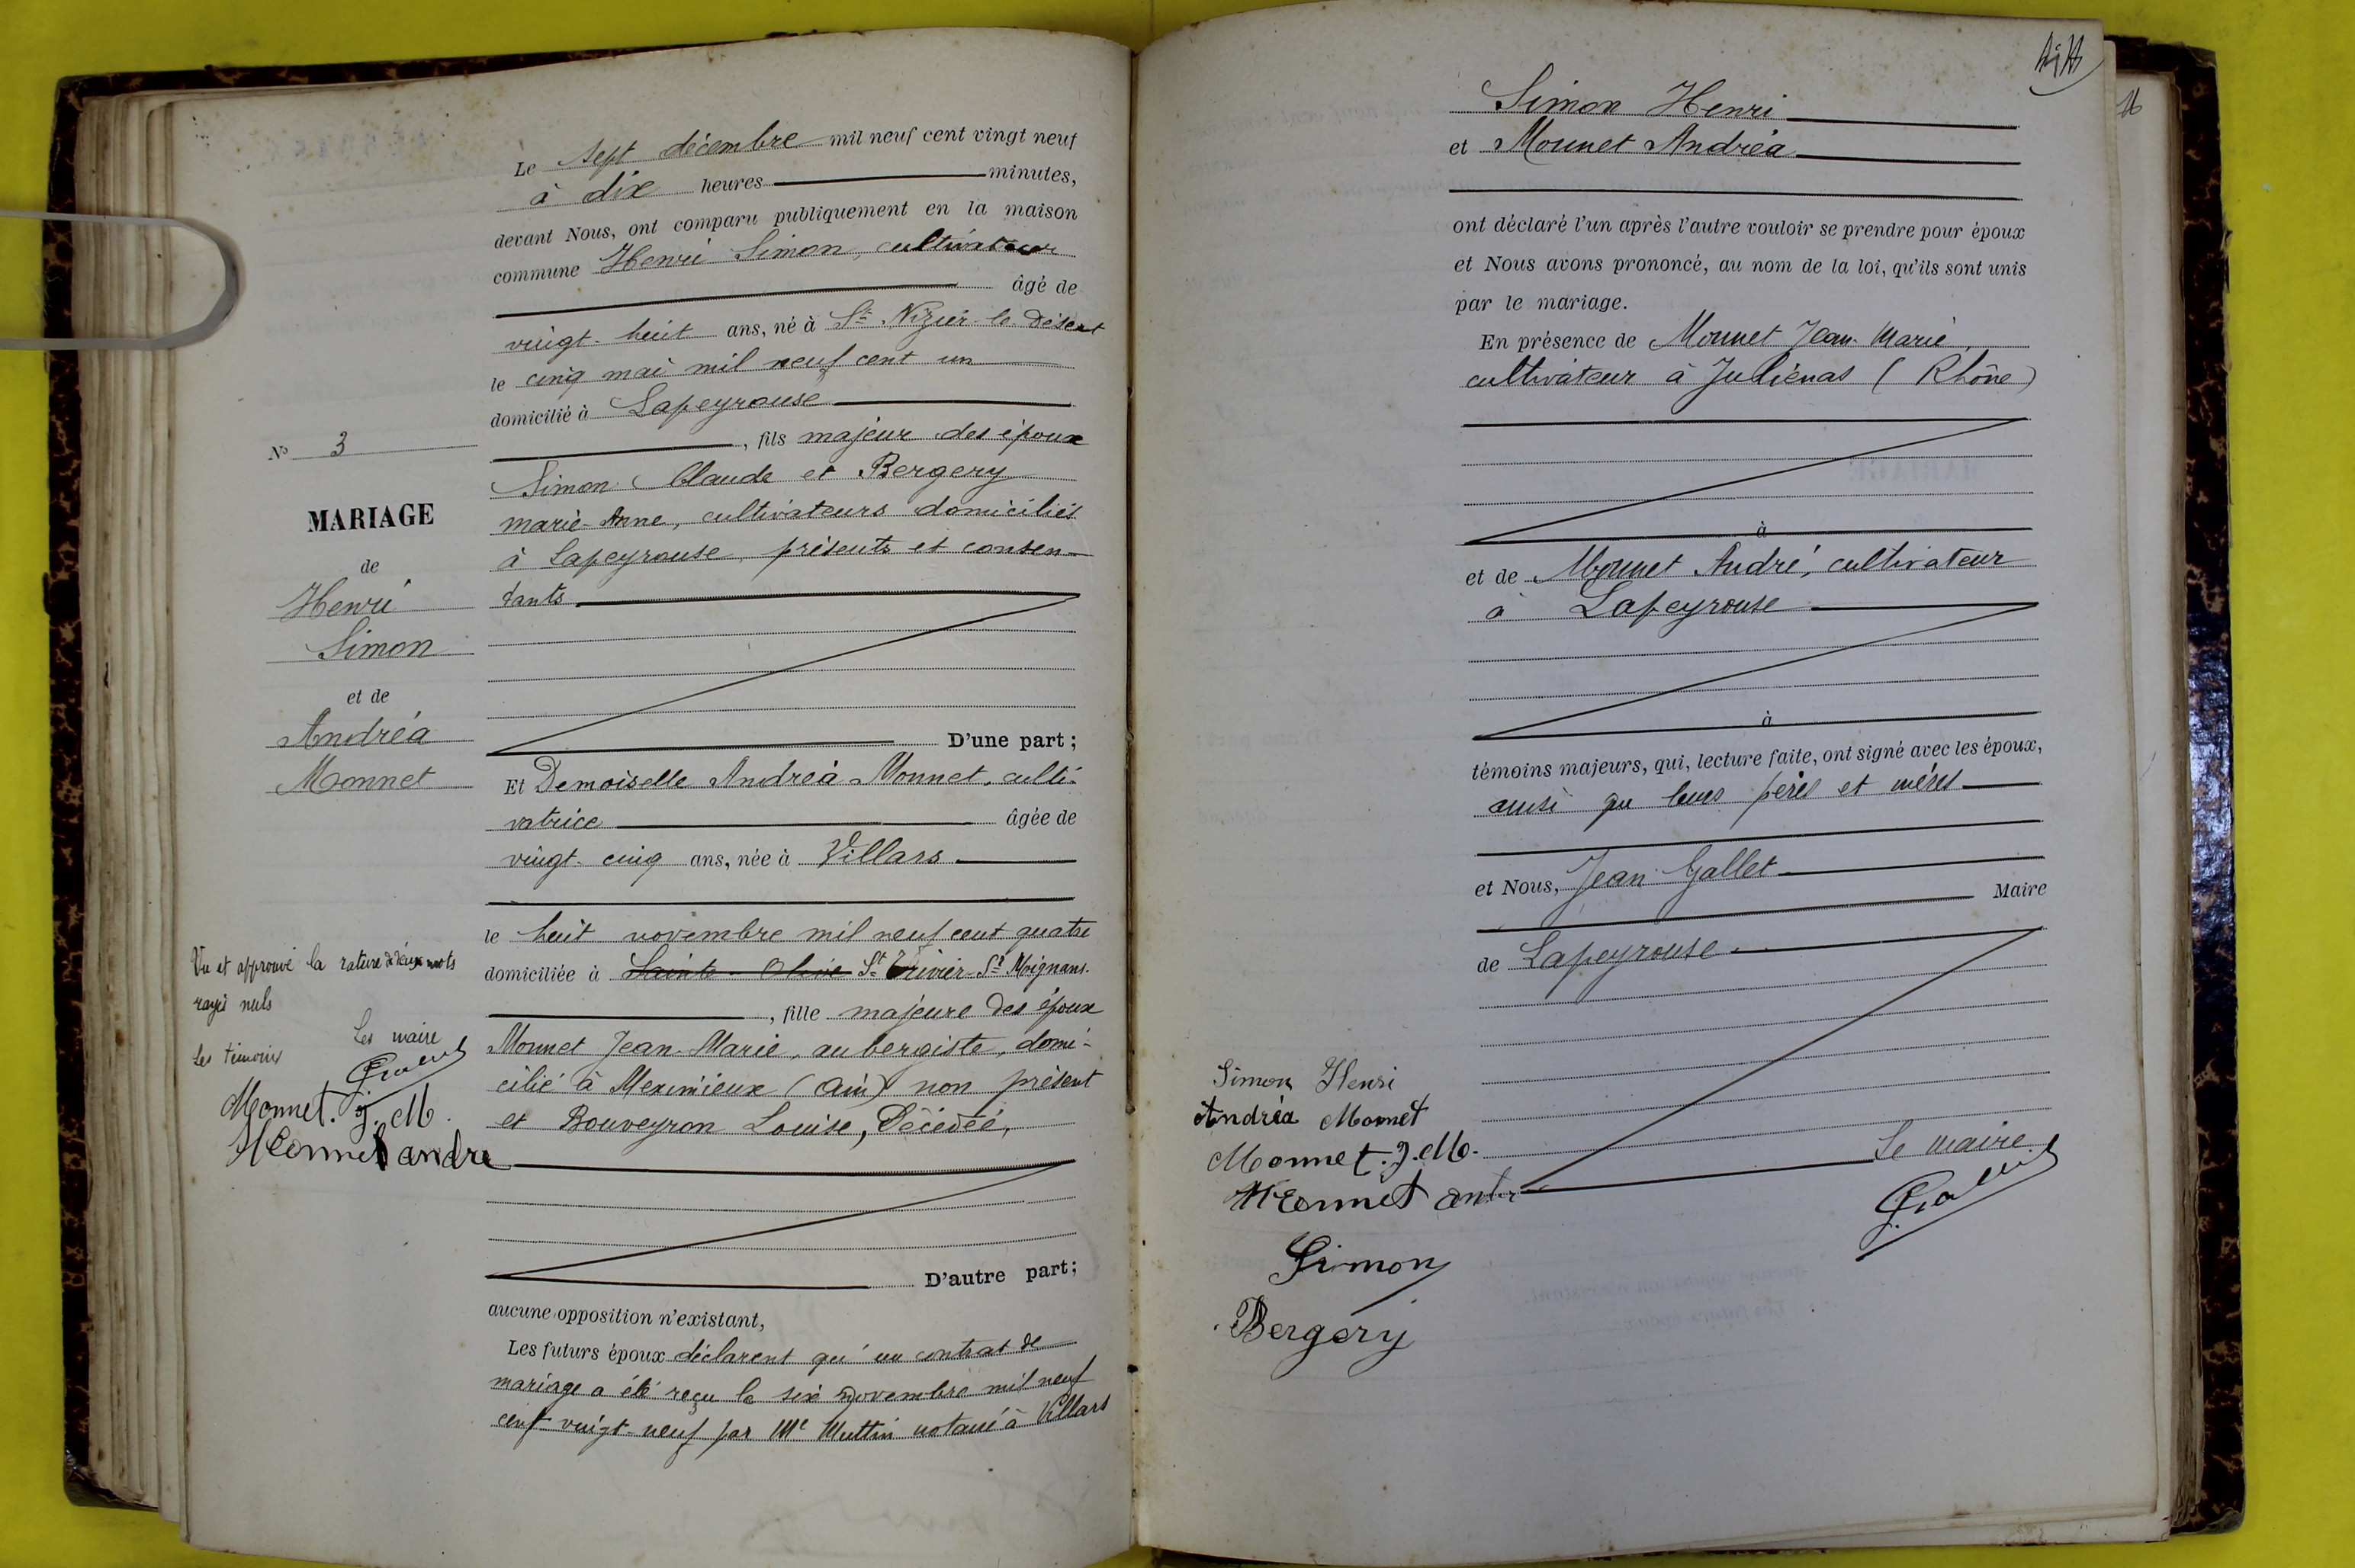 Le sept décembre mil neuf cent vingt neuf
à dix heures minutes,
devant Nous, ont comparu publiquement en la maison
commune Henri Simon, cultivateur
âgé de
vingt-huit ans, né à St Nizier-le-Désert
le cinq mai mil neuf cent un
domicilié à Lapeyrouse
, fils majeur des époux
Simon Claude et Bergery
marie-Anne, cultivateurs domiciliés
à Lapeyrouse, présents et consen-
tants
D'une part ;
Et Demoiselle Andréa Monnet, culti-
vatrice âgée de
vingt-cinq ans, née à Villars
le huit novembre mil neuf cent quatre
domiciliée à Sainte-Olive St Trivier-St Moignans.
, fille majeure des époux
Monnet Jean-Marie, aubergiste, domi-
cilié à Meximieux (Ain) non présent
et Bouveyron Louise, Décédée,
D'autre part ;
aucune opposition n'existant,
Les futurs époux déclarent qu'un contrat de
mariage a été reçu le six novembre mil neuf
cent vingt-neuf par Me Muttin notaire à Villars
No 3
MARIAGE
de
Henri
Simon
et de
Andréa
Monnet
Vu et approuvé la rature de deux mots
rayés nuls
Les témoins Le maire
Monnet. J. M.
Monnet andre
Simon Henri
et Monnet Andréa
ont déclaré l'un après l'autre vouloir se prendre pour époux
et Nous avons prononcé, au nom de la loi, qu'ils sont unis
par le mariage.
En présence de Monnet Jean-Marie,
cultivateur à Juliénas (Rhône)
à
et de Monnet André, cultivateur
à Lapeyrouse
à
témoins majeurs, qui, lecture faite, ont signé avec les époux,
ainsi que leurs pères et mères
et Nous, Jean Gallet
Maire
de Lapeyrouse
Simon Henri
Andréa Monnet
Monnet. J. M.
Monnet andre
Simon
Bergery
Le maire
16